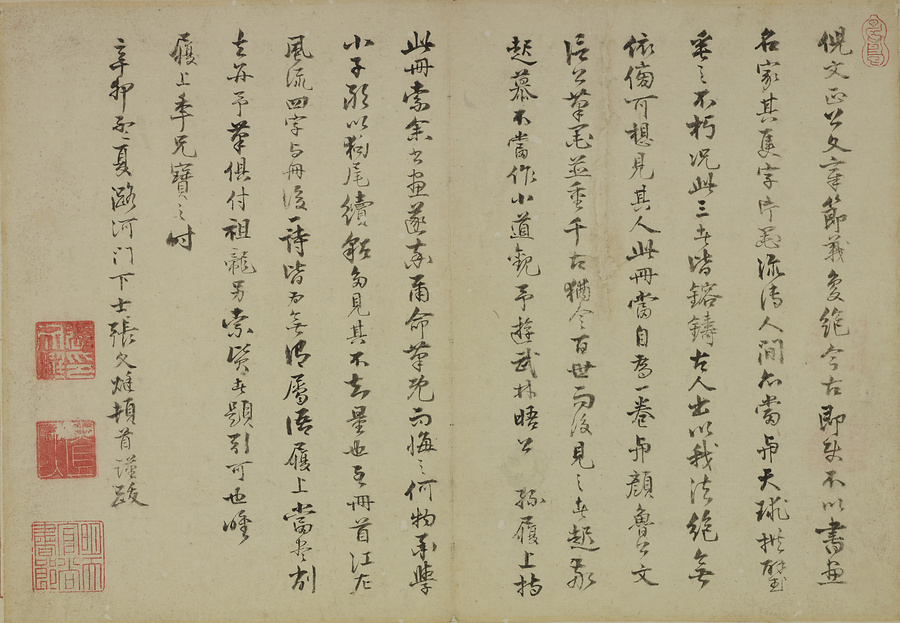 倪文正公文章節義受絕今古即使不以書畫
名家其隻字片墨流傳人間亦當與天球拱璧
垂之不朽況此三者皆鎔鑄古人出以我法絕無
依傍可想見其人此冊當自為一卷與顏魯公文
信公筆墨並垂千古猶令百世而後見之者起敬
起慕不當作小道觀予遊武林晤公 孫履上持
此冊索余書畫遂奉爾命筆既而悔之何物承學
小子敢以狗尾續貂多見其不知量也至冊首江左
風流四字與冊後一詩皆為無謂屬語履上當盡削
去并予筆俱付祖龍另索賢者題引可也時
履上年兄寶之
辛卯孟夏潞河门下士張文 頓首謹跋